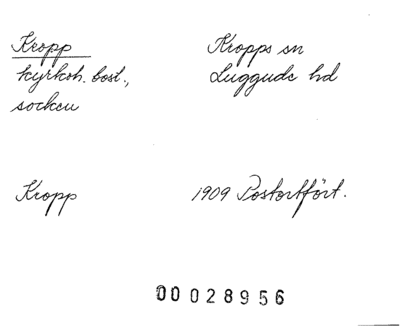 Kropp
kyrkoh. bost.,
socken
Kropps sn
Luggude hd
Kropp
1909 Postortfört.
00 028956